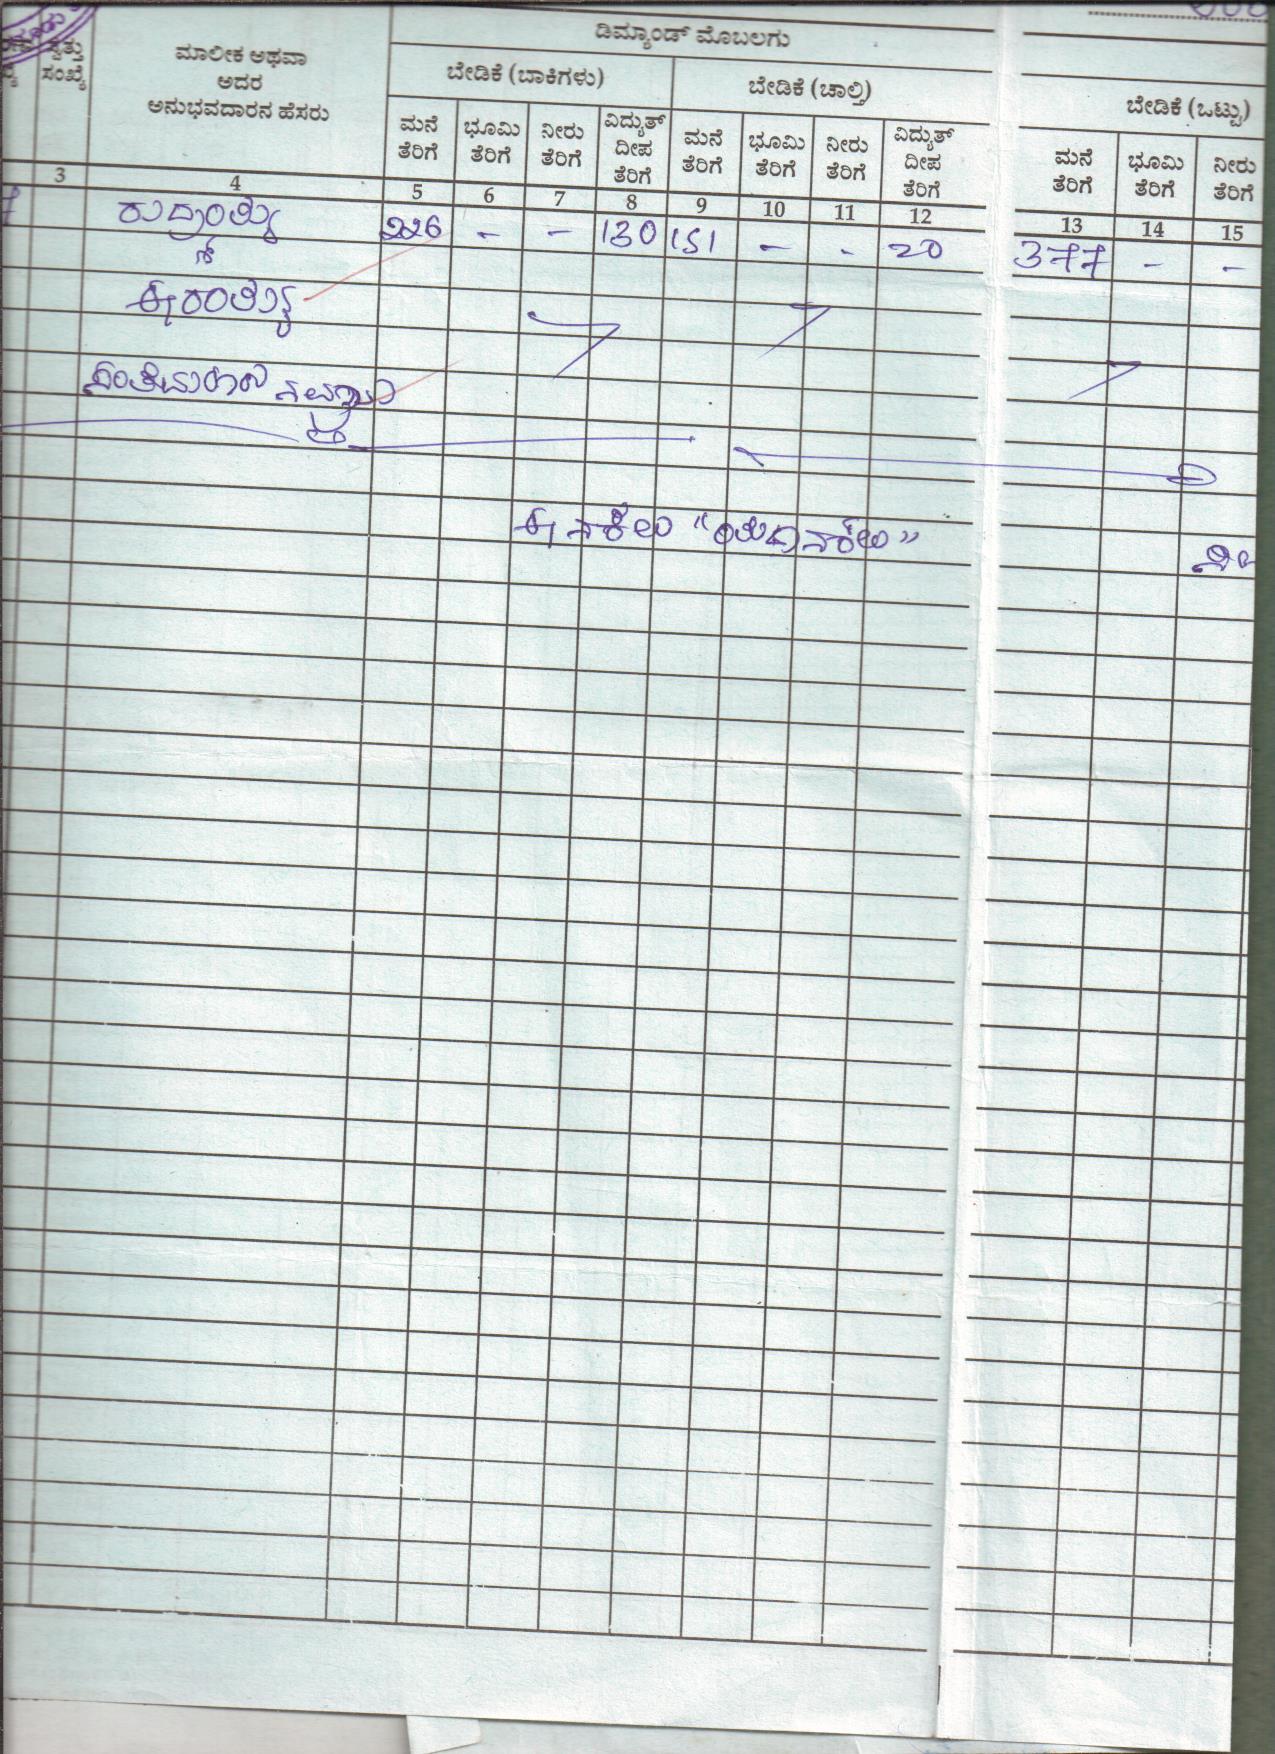 ಡಿಮ್ಯಾಂಡ್ ಮೊಬಲಗು
ಸ್ವತ್ತು ಸಂಖ್ಯೆ
ಮಾಲೀಕ ಅಥವಾ ಅದರ ಅನುಭವದಾರನ ಹೆಸರು
ಬೇಡಿಕೆ (ಬಾಕಿಗಳು) ಬೇಡಿಕೆ (ಚಾಲ್ತಿ) ಬೇಡಿಕೆ (ಒಟ್ಟು)
ಮನೆ ತೆರಿಗೆ ಭೂಮಿ ತೆರಿಗೆ ನೀರು ತೆರಿಗೆ ವಿದ್ಯುತ್ ದೀಪ ತೆರಿಗೆ ಮನೆ ತೆರಿಗೆ ಭೂಮಿ ತೆರಿಗೆ ನೀರು ತೆರಿಗೆ ವಿದ್ಯುತ್ ದೀಪ ತೆರಿಗೆ ಮನೆ ತೆರಿಗೆ ಭೂಮಿ ತೆರಿಗೆ ನೀರು ತೆರಿಗೆ
3 4 5 6 7 8 9 10 11 12 13 14 15
ರುದ್ರಯ್ಯ 226 - - 130 151 - - 20 377 - -
ಈರಯ್ಯ
ಈ ನಕಲು "